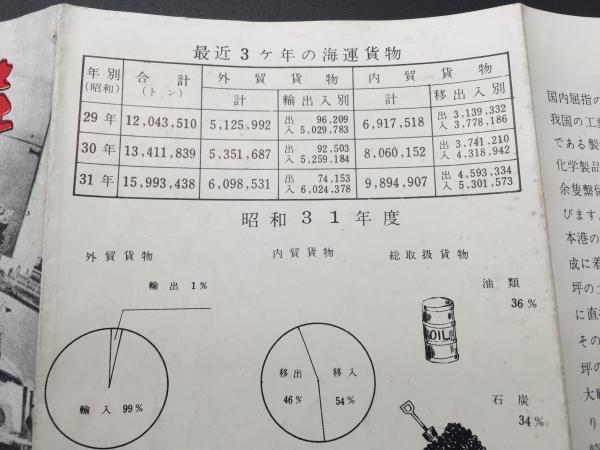 最近3ヶ年の海運貨物
年別(昭和) 合計(トン) 外貿貨物 内貿貨物
計 輸出入別 計 移出入別
29年 12,043,510 5,125,992 出 96,209 入 5,029,783 6,917,518 出 3,139,332 入 3,778,186
30年 13,411,839 5,351,687 出 92,503 入 5,259,184 8,060,152 出 3,741,210 入 4,318,942
31年 15,993,438 6,098,531 出 74,153 入 6,024,378 9,894,907 出 4,593,334 入 5,301,573
昭和31年度
外貿貨物
輸出 1%
輸入 99%
内貿貨物
移出 46%
移入 54%
総取扱貨物
油類
36%
OIL
石炭
34%
国内屈指の
我国の工業
である製
化学製品
余隻繋留
びます。
本港の
成に着
坪の土
に直
その
坪の
大
り